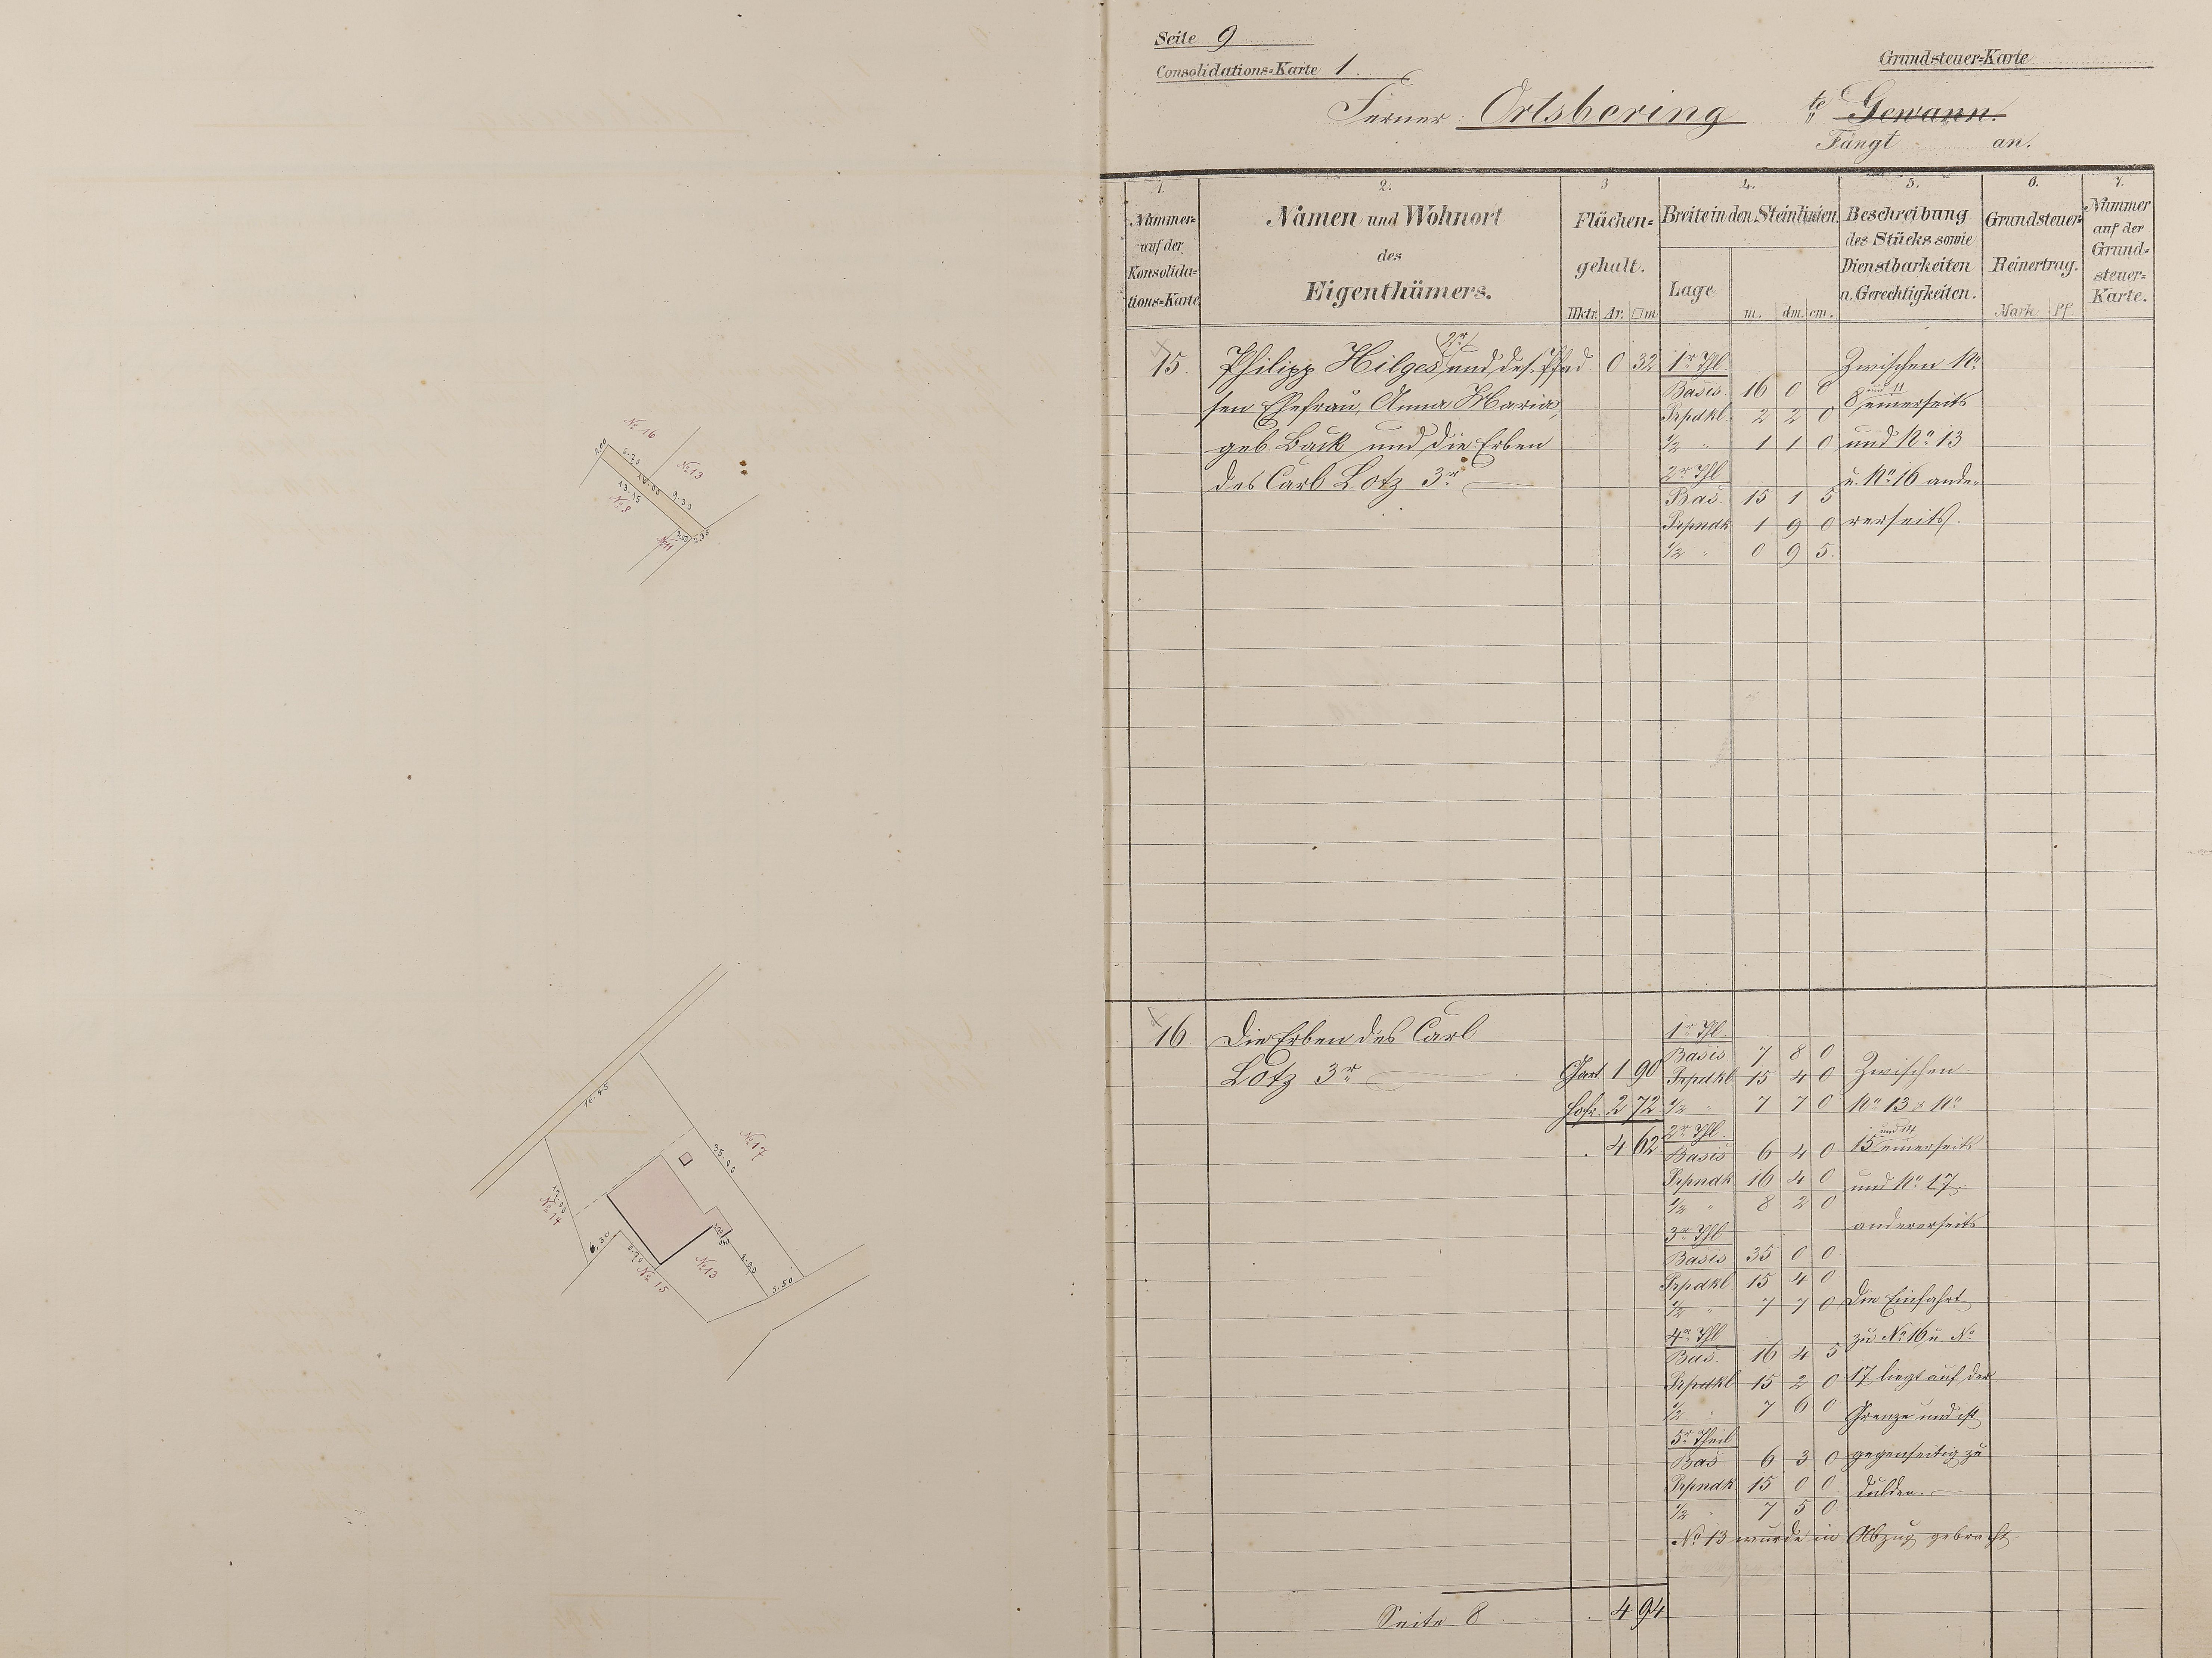 Seite 9
Consolidations=Karte 1.
Grundsteuer=Karte
Ferner: Ortsbering te Gewann.
Fängt an.
1. 2. 3 4. 5. 6. 7.
Nummer auf der Konsolida=tions=Karte
Namen und Wohnort des Eigenthümers.
Flächen=gehalt.
Hktr. Ar. □m
Breite in den Steinlinien.
Lage m. dm. cm.
Beschreibung des Stücks sowie Dienstbarkeiten u. Gerechtigkeiten.
Grundsteuer=Reinertrag.
Mark Pf.
Nummer auf der Grund=steuer=Karte.
15. Philipp Hilges 2r und des= Pfad 0 32 1r Thl. Zwischen No
sen Ehefrau, Anna Maria, Basis. 16 0 0 8 und 11 einerseits
Prpdkl. 2 2 0
geb. Back und die Erben 1/2 " 1 1 0 und No 13
des Carl Lotz 3r 2r Thl u. No 16 ande=
Bas 15 1 5
Prpndk 1 9 0 rerseits.
1/2 " 0 9 5.
16 Die Erben des Carl 1r Thl.
Lotz 3r Gart 1 90 Basis. 7 8 0 Zwischen
Prpdkl 15 4 0
Hofr. 2 72 1/2 " 7 7 0 No 13 & No
2r Thl.
4 62 Basis 6 4 0 15 und 14 einerseits
Prpndk 16 4 0 und No 17
1/2 " 8 2 0
3r Thl andererseits
Basis 35 0 0
Prpdkl 15 4 0
1/2 " 7 7 0 Die Einfahrt
4r Thl zu No 16 u. No
Bas. 16 4 5
Prpdkl 15 2 0 17 liegt auf der
1/2 " 7 6 0 Grenze und ist
5r Theil
Bas 6 3 0 gegenseitig zu
Prpndk 15 0 0 dulden.
1/2 " 7 5 0
No 13 wurde in Abzug gebracht
Seite 8 4 94
No 16
2.00
6.70
No 13
10.03
13.15
9.30
No 8
No 11
16.45
No 17
35.00
17.00
No 14
6.30
No 15
No 13
5.50